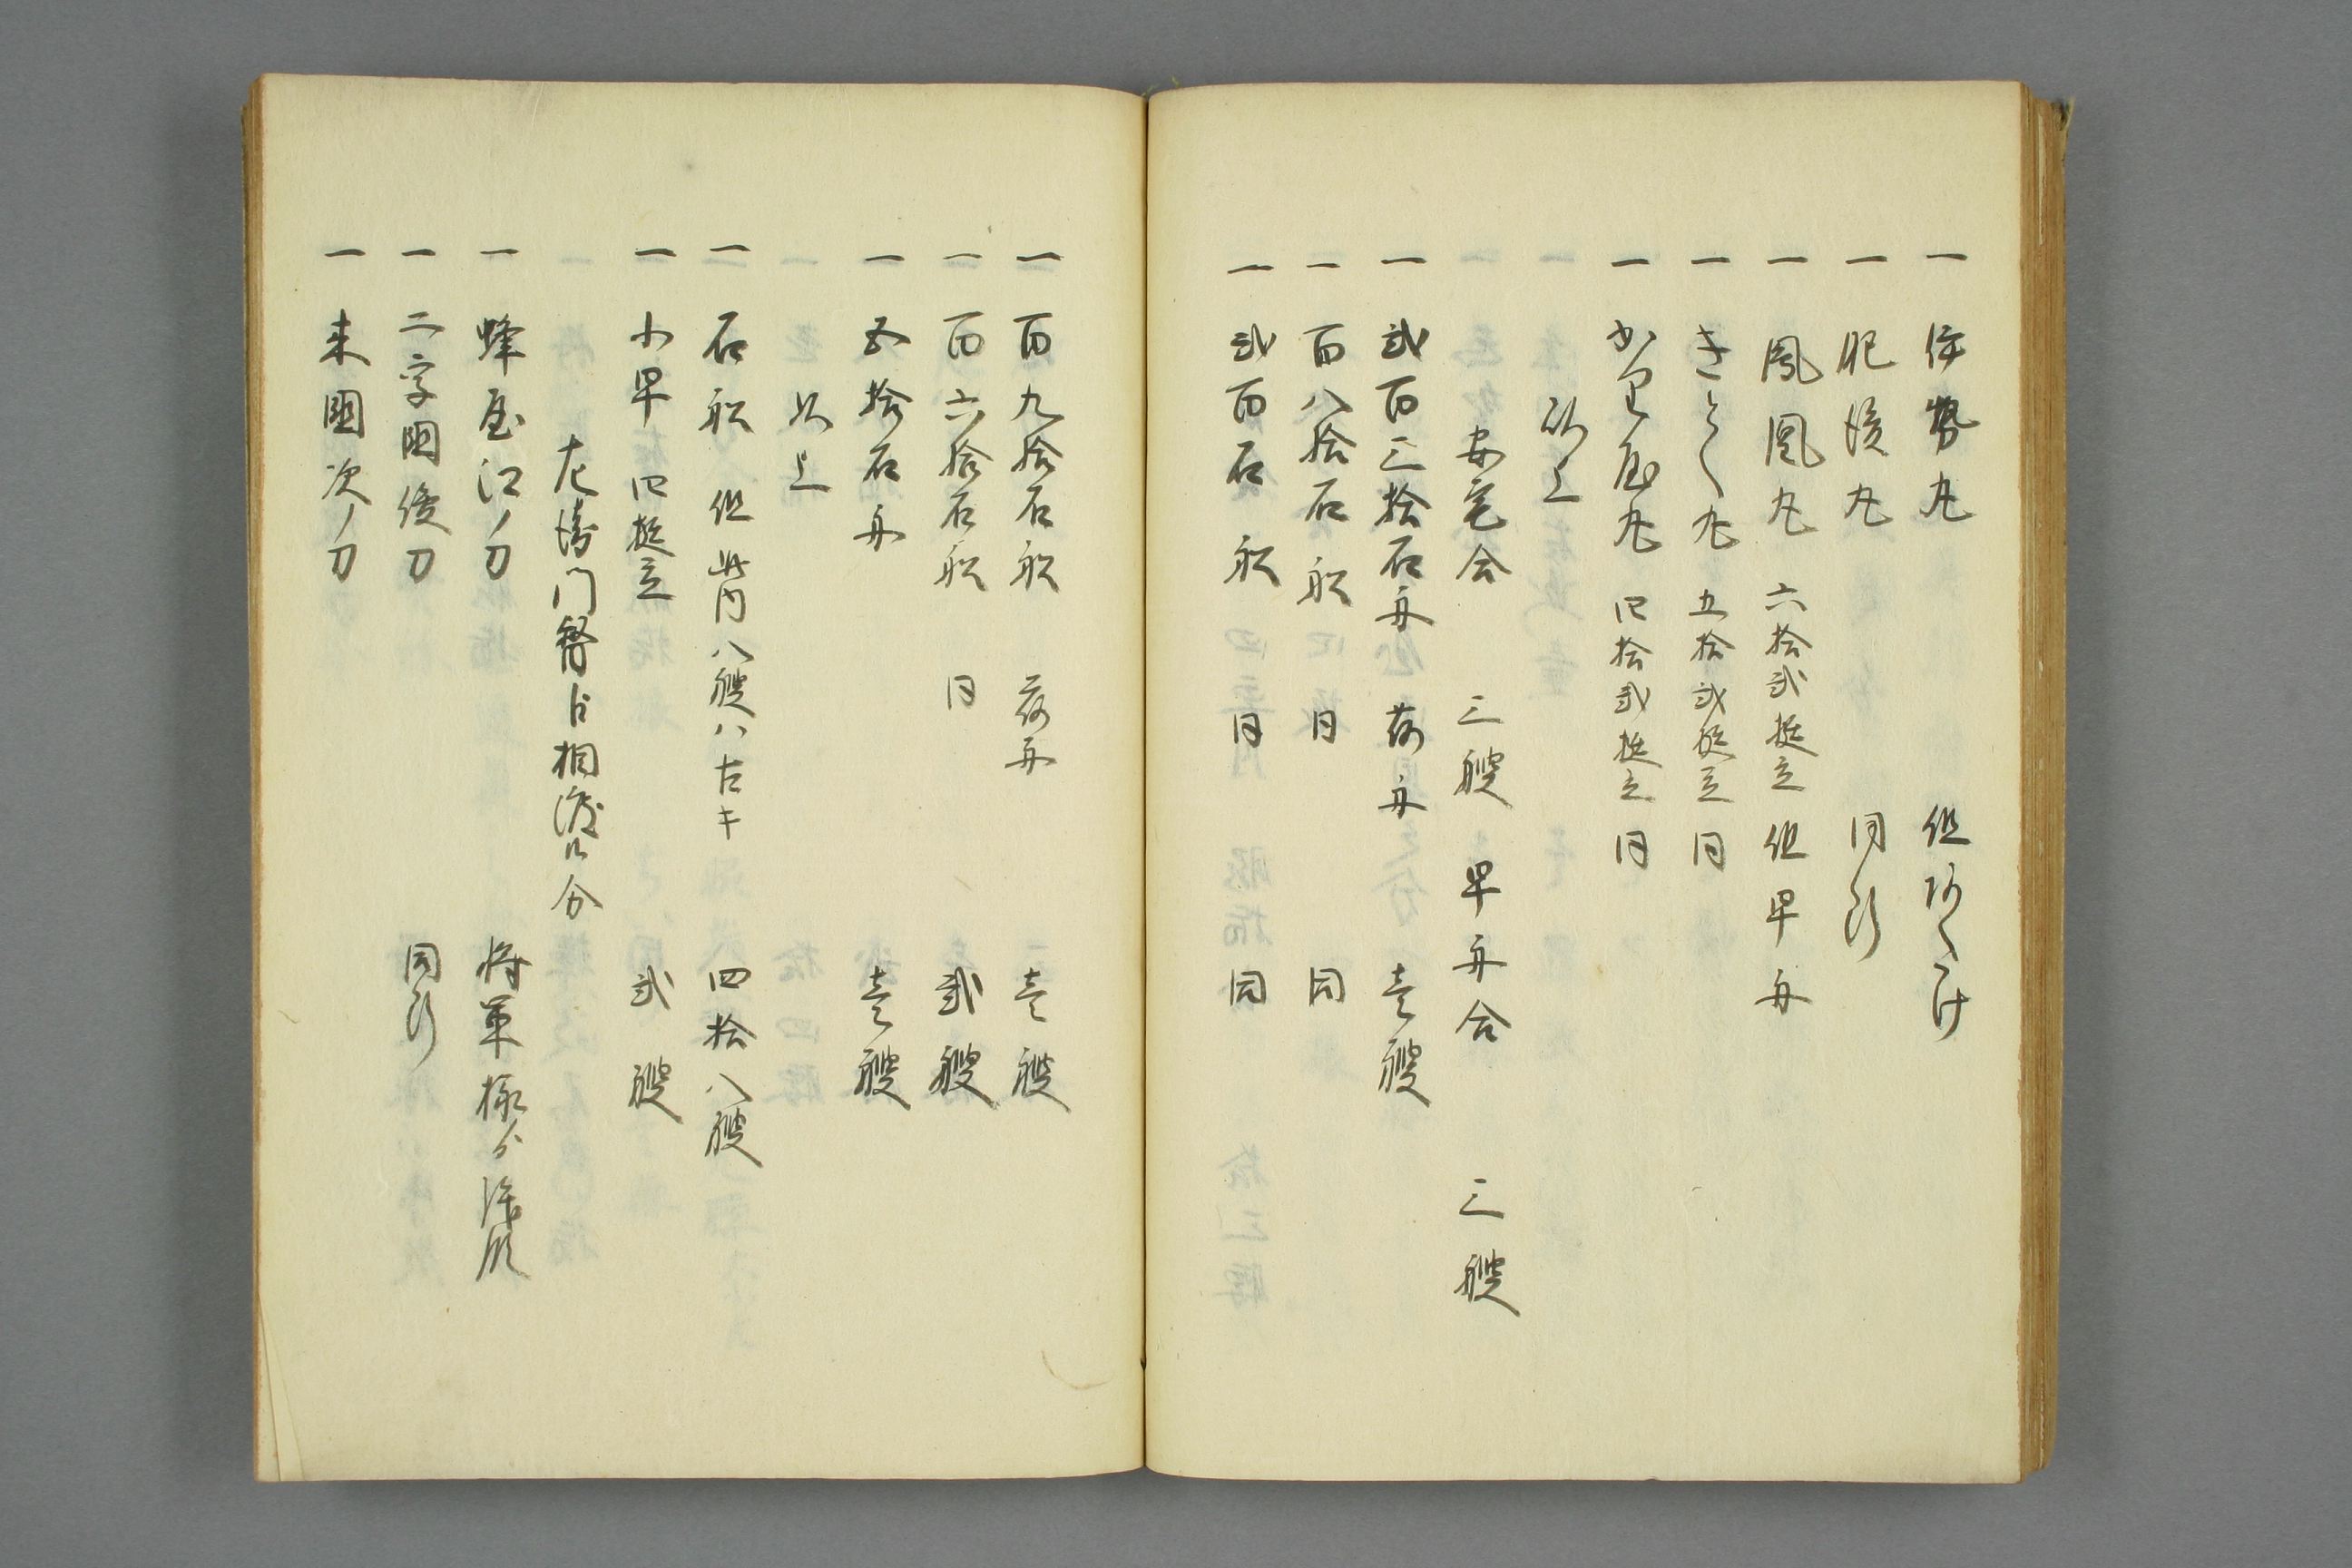 一 伊勢丸 但
一 肥後丸 同断
一 鳳凰丸 六拾弐挺立 但早舟
一 きとく丸 五拾弐挺立 同
一 かり屋丸 四拾弐挺立 同
以上
安宅合 三艘 早舟合 三艘
一 弐百三拾石舟 荷舟 壱艘
一 百八拾石船 同 同
一 弐百石船 同 同
一 百九拾石船 荷舟 壱艘
一 百六拾石船 同 弐艘
一 五拾石舟 壱艘
以上
一 石船 但此内八艘ハ古キ 四拾八艘
一 小早 四挺立 弐艘
左衛門督ゟ相渡ル分
一 蜂屋江ノ刀 将軍様ゟ拝領
一 二字国俊刀 同断
一 来国次ノ刀